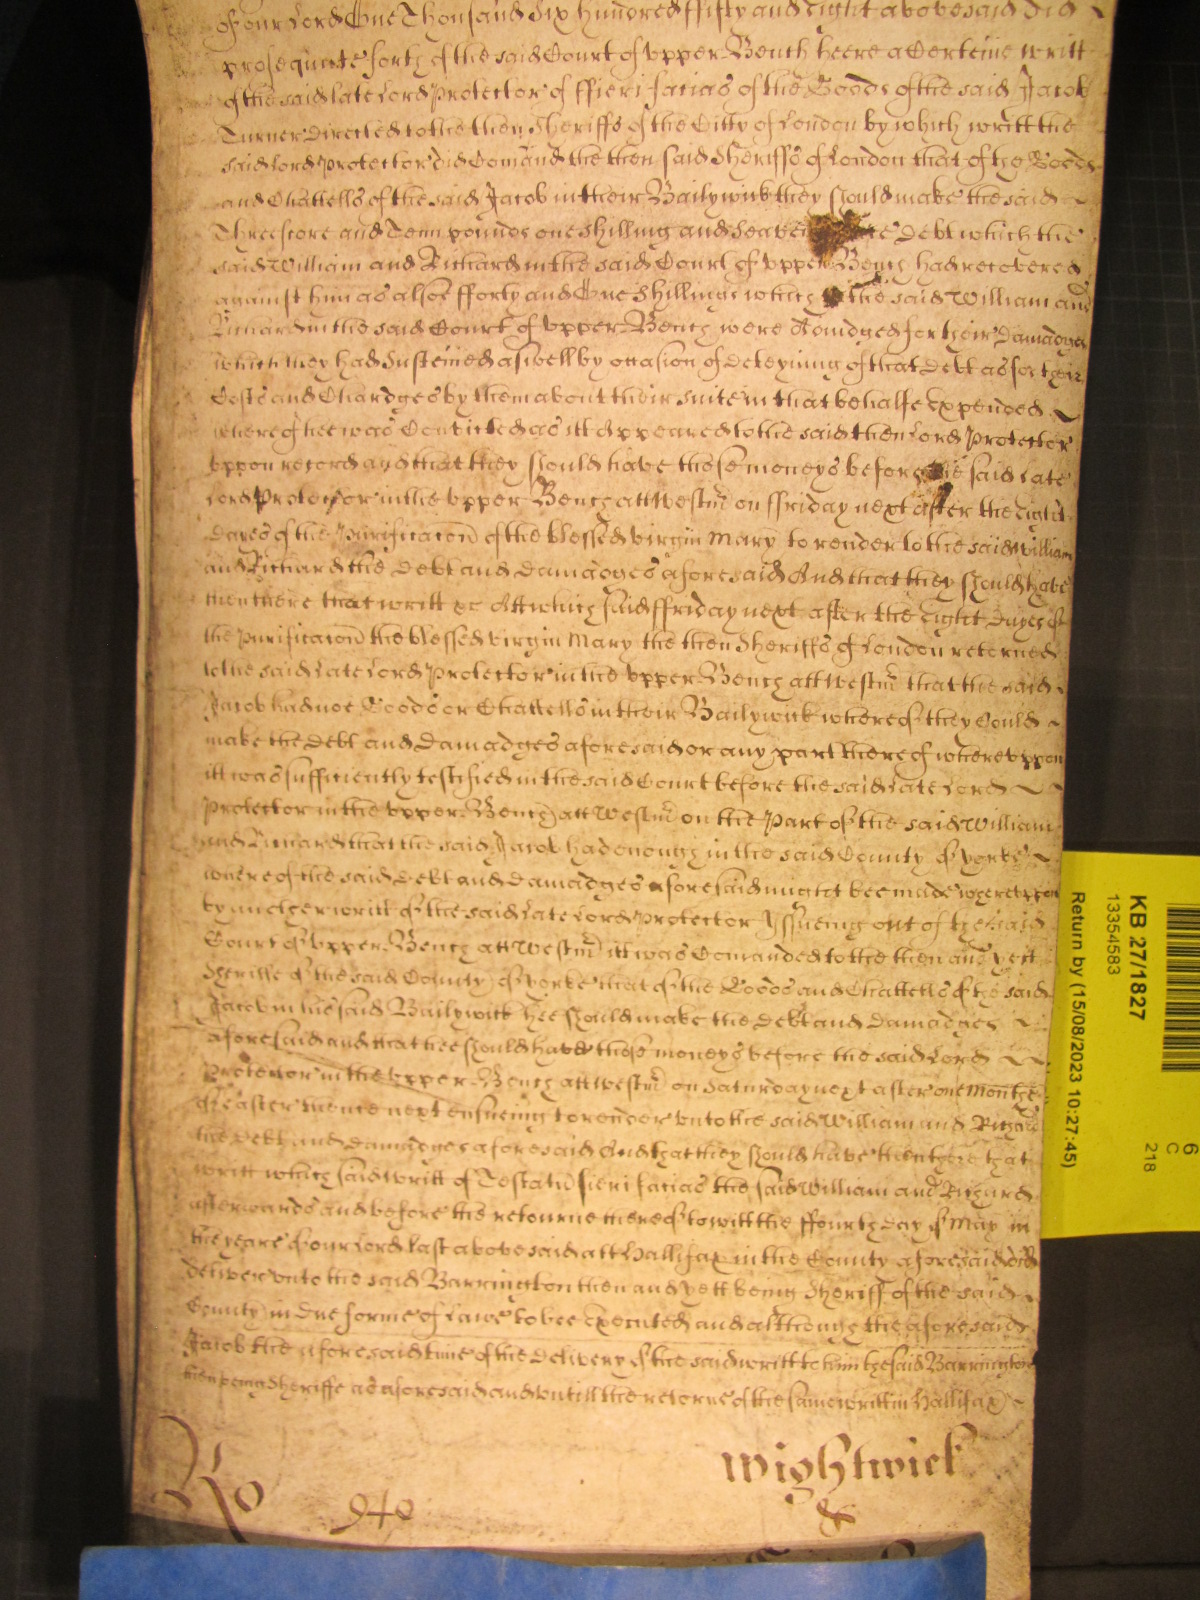 of our Lord One Thousand Six hundred ffifty and Eight abovesaid did
prosequute forth of the said Court of Upper Bench heere a Certeine writt
of the said late Lord Protector of ffieri facias of the Goods of the said Jacob
Turner directed to the then Sheriffs of the Citty of London by which writt the
said Lord Protector did Comand the then said Sheriffs of London that of the Goods
and Chattells of the said Jacob in their Bailywick they should make the said
Threescore and Tenn pounds one shilling and seaven debt which the
said William and Richard in the said Court of Upper Bench had recovered
against him as alsoe fforty and One shillings which the said William and
Richard in the said Court of Upper Bench were Adiudged for their damadges
which they had susteined aswell by occasion of deteyning of that debt as for their
Costs and Chardges by them about their suite in that behalfe expended
whereof hee was Convicted as itt Appeared to the said then Lord Protector
uppon record and that they should have those moneys before the said late
Lord Protector in the Upper Bench att Westmr on ffriday next after the Eight
dayes of the Purificacon of the blessed virgin Mary to render to the said William
and Richard the debt and damadges aforesaid And that they should have
then there that writt &c Att which said ffriday next after the Eight dayes of
the Purificacon the blessed virgin Mary the then Sheriffs of London retorned
to the said late Lord Protector in the Upper Bench att Westmr that the said
Jacob had noe Goods or Chattells in their Bailywick whereof they Could
make the debt and damadges aforesaid or any part thereof whereuppon
itt was sufficiently testified in the said Court before the said late Lord
Protector in the Upper Bench att Westmr on the Part of the said William
and Richard that the said Jacob had enough in the said County of Yorke
whereof the said debt and damadges aforesaid might bee made whereuppon
by another writt of the said late Lord Protector Issueing out of the said
Court of Upper Bench att Westmr itt was Comanded to the then and yett
Sheriffe of the said County of Yorke that of the Goods and Chattells of the said
Jacob in his said Bailywick hee should make the debt and damadges
aforesaid and that hee should have those moneys before the said Lord
Protector in the Upper Bench att Westmr on Saturday next after one Monthe
of Easter thence next ensueing to render unto the said William and Richard
the debt and damadges aforesaid And that they should have then there that
writt which said writt of Testatu fieri facias the said William and Richard
afterwards and before the retourne thereof to witt the ffourth day of May in
the yeare of our Lord last abovesaid att Hallifax in the County aforesaid did
deliver unto the said Barrington then and yett being Sheriff of the said
County in due forme of Lawe to bee executed and although the aforesaid
Jacob the aforesaid time of the delivery of the said writt to him the said Barrington
then being Sheriffe as aforesaid and untill the retorne of the same writt in Hallifax
Wightwick
Ro 940 &
KB 27/1827
13354583
Return by (15/08/2023 10:27:45)
6
C
218